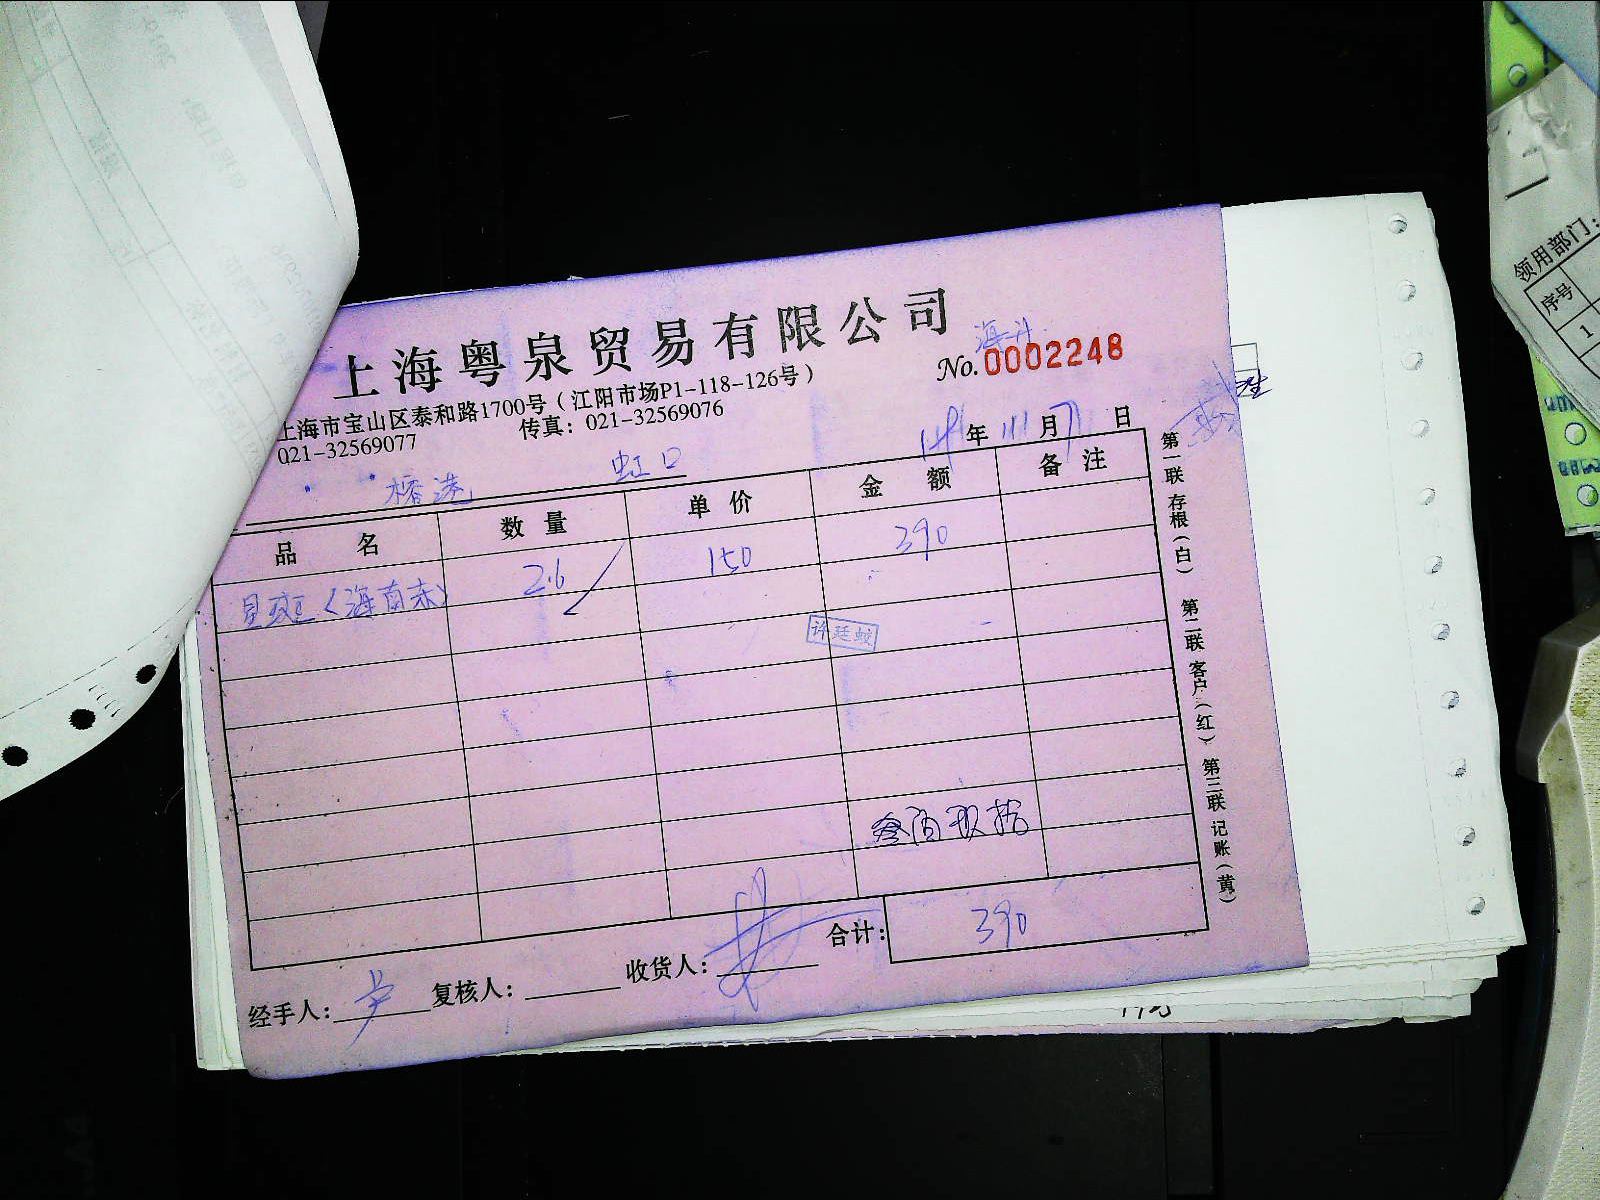 上海粤泉贸易有限公司
No.0002248
上海市宝山区泰和路1700号（江阳市场P1-118-126号）
021-32569077 传真：021-32569076
年 月 日
虹口
品名 数量 单价 金额 备注
(海南东) 2.6 150 390
许廷蛟
叁佰玖拾
合计： 390
经手人： 复核人： 收货人：
第一联 存根（白） 第二联 客户（红） 第三联 记账（黄）
领用部门：
序号
1